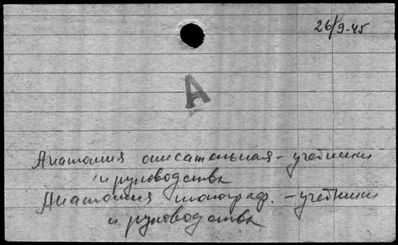 26/9-45
А
Анатомия описательная – учебники
и руководства
Анатомия топограф. – учебники
и руководства